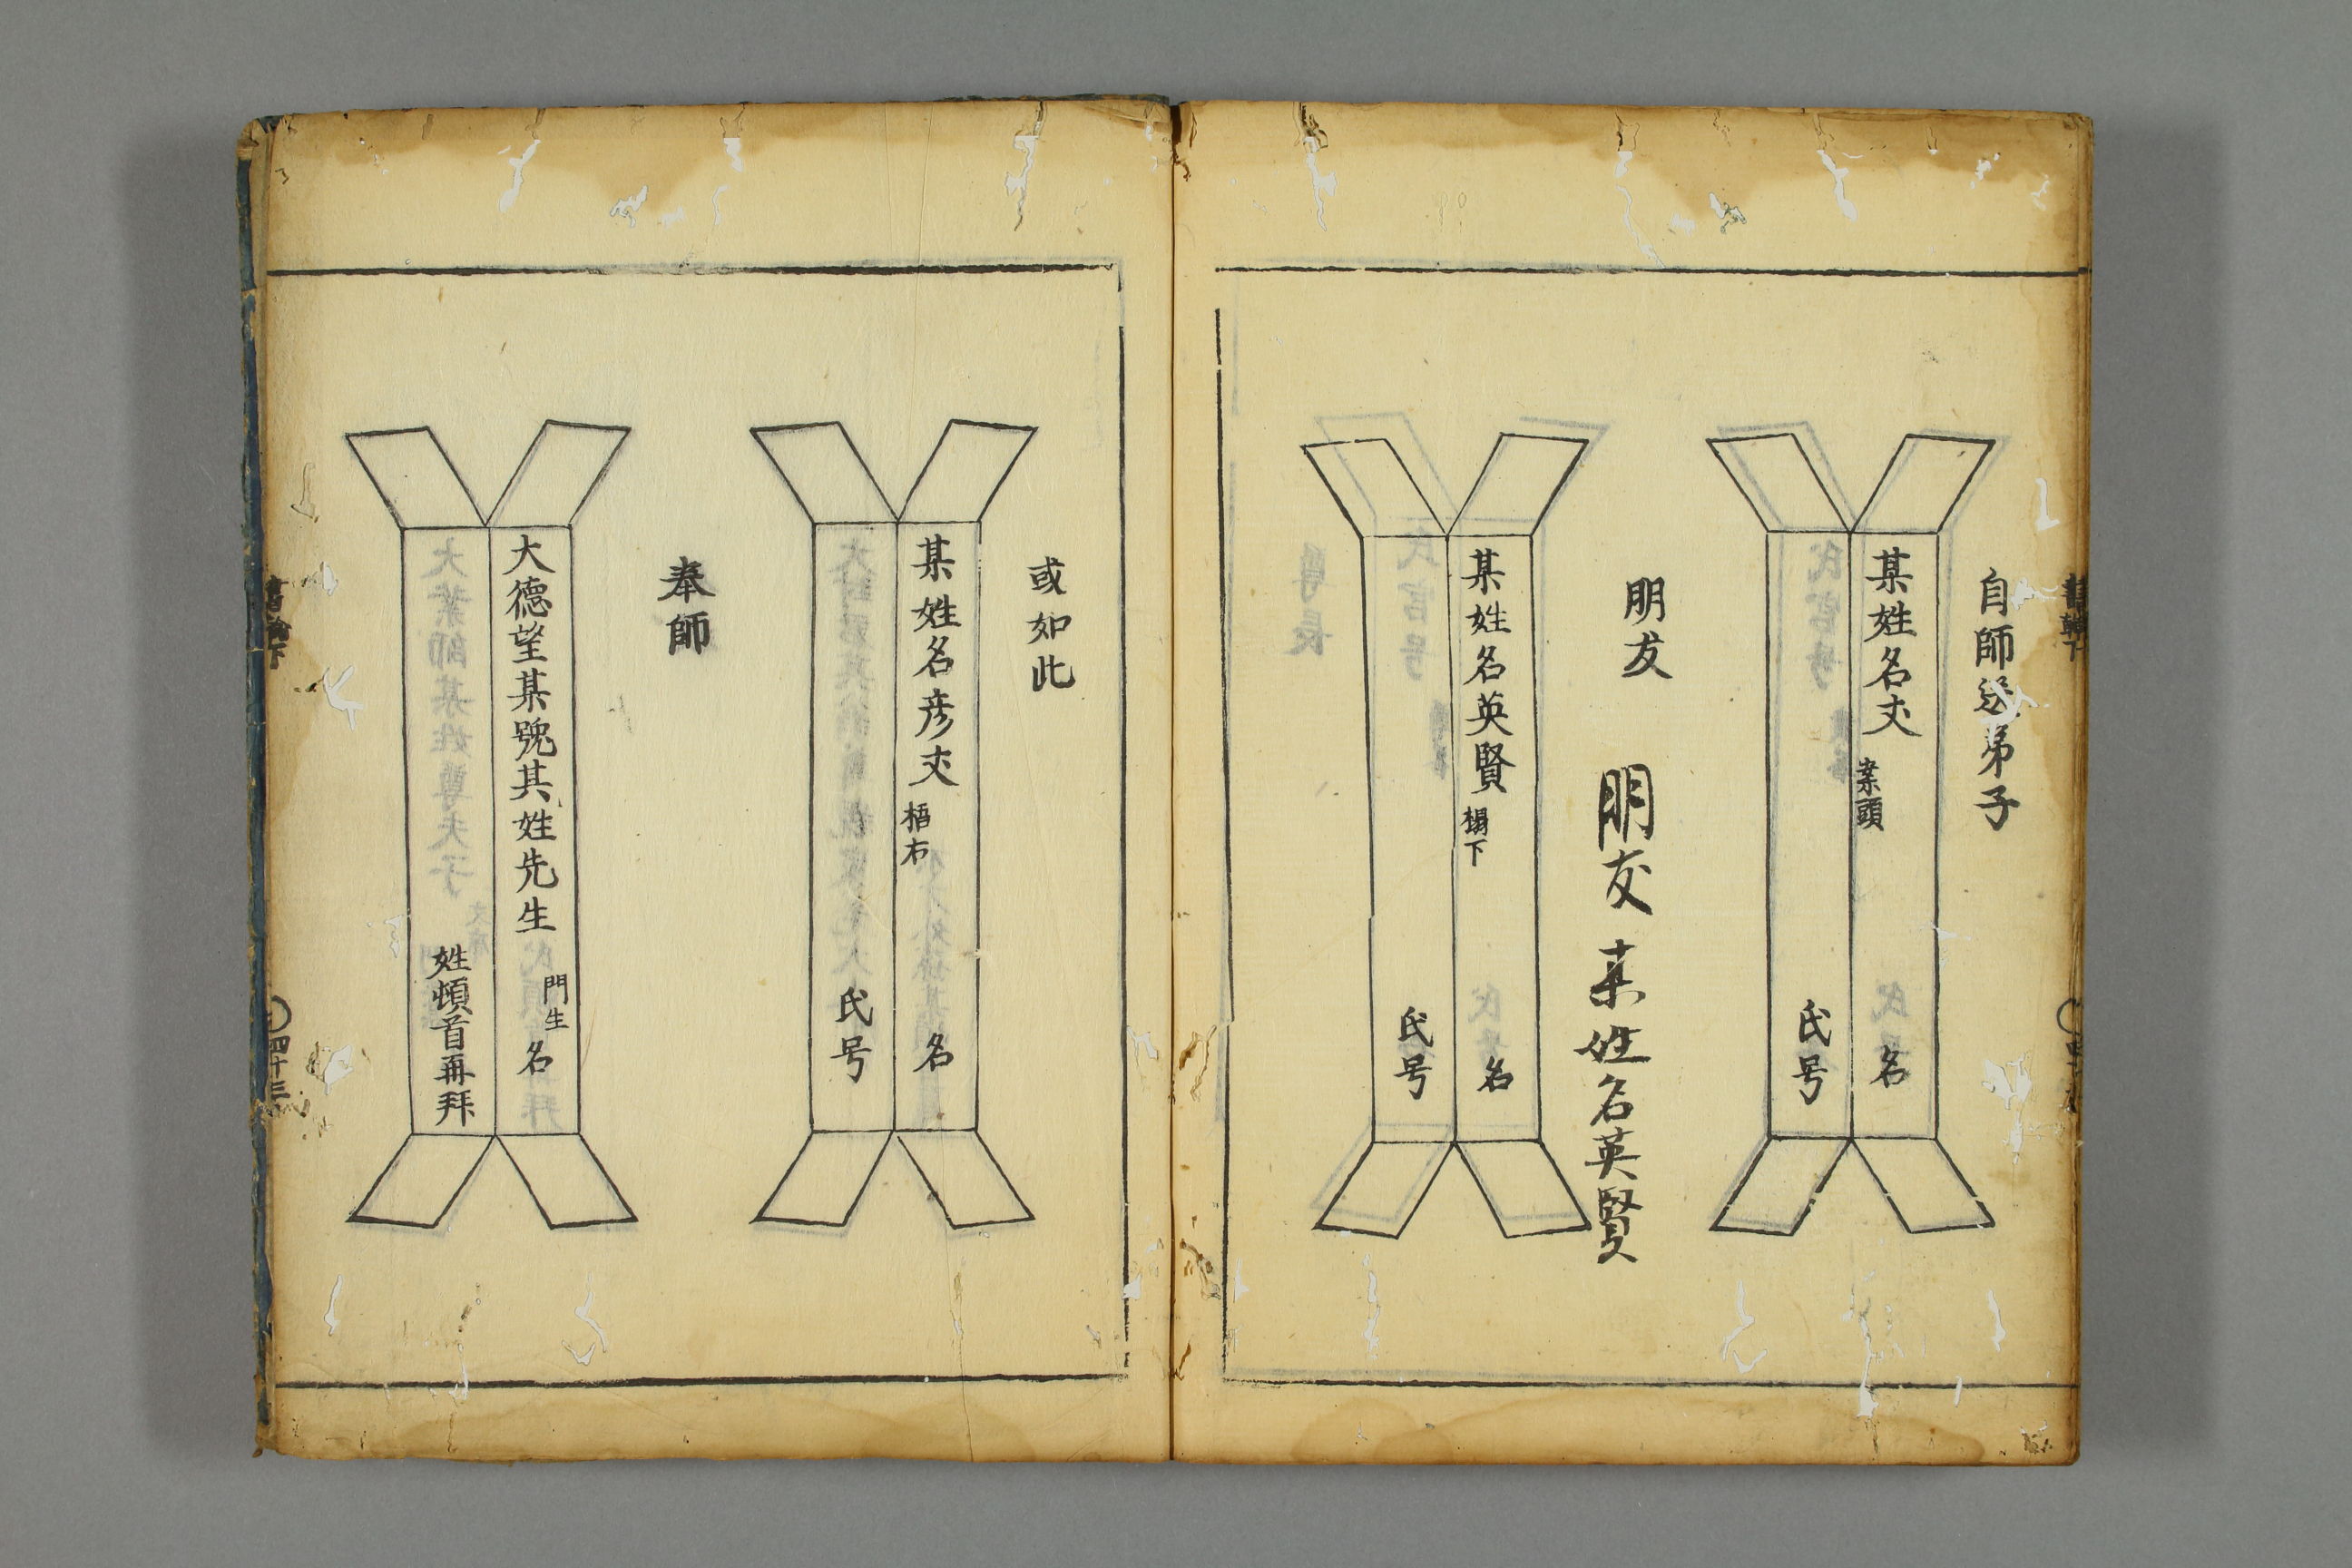 自師送弟子
某姓名丈
案頭
名
氏号
朋友
朋友 某姓名英賢
某姓名英賢
榻下
名
氏号
或如此
某姓名彦丈
梧右
名
氏号
奉師
大德望某號其姓先生
門生
名
姓頓首再拜
四十三